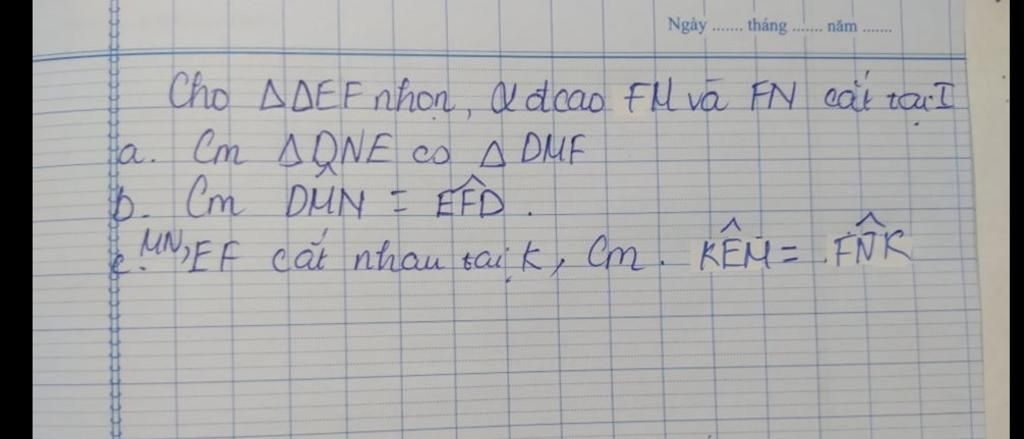 Ngày ....... tháng ....... năm .......
Cho ΔDEF nhọn, 2 đcao FM và FN cắt tại I
a. Cm ΔDNE ∽ ΔDMF
b. Cm DM̂N = EF̂D.
c. MN, EF cắt nhau tại K, Cm. KÊM = FN̂K